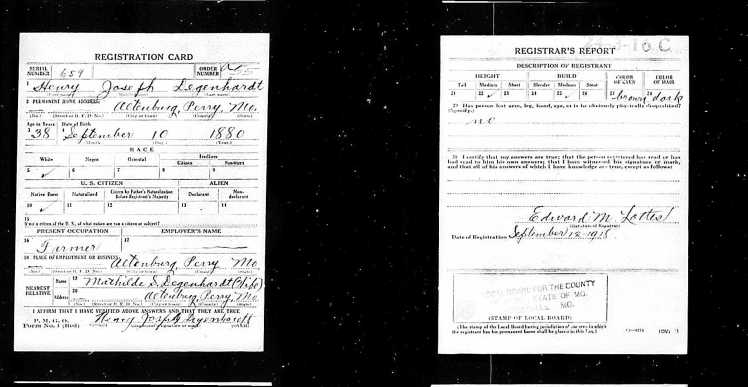 REGISTRATION CARD
SERIAL NUMBER 659 ORDER NUMBER
1 Henry Joseph Degenhardt
2 PERMANENT HOME ADDRESS:
Altenburg, Perry, Mo.
Age in Years Date of Birth
38 September 10 1880
RACE
White Negro Oriental Indian
Citizen
5 ✓ 6 7 8 9
U. S. CITIZEN ALIEN
Native Born Naturalized Citizen by Father's Naturalization Before Registrant's Majority Declarant Non-declarant
10 ✓ 11 12 13 14
15
If not a citizen of the U. S., of what nation are you a citizen or subject?
PRESENT OCCUPATION EMPLOYER'S NAME
16 Farmer 17
18 PLACE OF EMPLOYMENT OR BUSINESS:
Altenburg Perry Mo
NEAREST RELATIVE Name 19 Mathilde S. Degenhardt (Wife)
Address 20 Altenburg, Perry, Mo
I AFFIRM THAT I HAVE VERIFIED ABOVE ANSWERS AND THAT THEY ARE TRUE
P. M. G. O.
Form No. 1 (Red) Henry Joseph Degenhardt
REGISTRAR'S REPORT
DESCRIPTION OF REGISTRANT
HEIGHT BUILD COLOR OF EYES COLOR OF HAIR
Tall Medium Short Slender Medium Stout
21 22 ✓ 23 24 25 ✓ 26 27 brown 28 dark
29 Has person lost arm, leg, hand, eye, or is he obviously physically disqualified?
(Specify.)
no
30 I certify that my answers are true; that the person registered has read or has
had read to him his own answers; that I have witnessed his signature or mark,
and that all of his answers of which I have knowledge are true, except as follows:
Edward M. Lottes
(Signature of Registrar)
Date of Registration September 12-1918
LOCAL BOARD FOR THE COUNTY
STATE OF MO.
MO.
(STAMP OF LOCAL BOARD)
(The stamp of the Local Board having jurisdiction of the area in which
the registrant has his permanent home shall be placed in this box.)